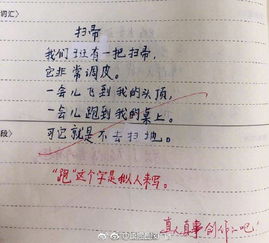 词汇〉
扫帚
我们班有一把扫帚，
它非常调皮。
一会儿飞到我的头顶，
一会儿跑到我的桌上。
段〉
可它就是不去扫地。
"跑"这个字是拟人来写。
真人真事创作吧！